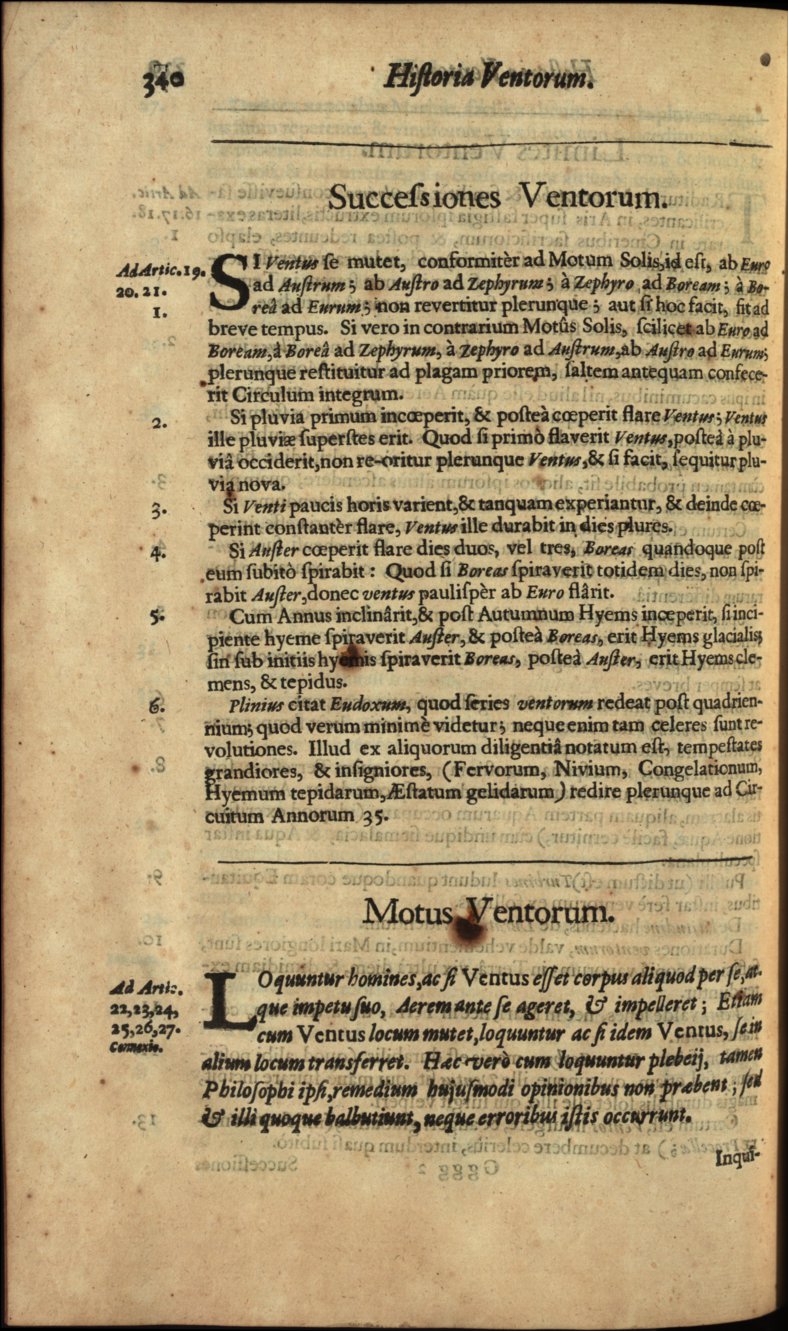 340 Historia Ventorum.
Successiones Ventorum.
Ad Artic. 19.
20. 21.
1.
SI Ventus se mutet, conformitèr ad Motum Solis, id est, ab Euro
ad Austrum; ab Austro ad Zephyrum; à Zephyro ad Boream; à Bo-
reâ ad Eurum; non revertitur plerunque; aut si hoc facit, fit ad
breve tempus. Si vero in contrarium Motûs Solis, scilicet ab Euro ad
Boream, à Boreâ ad Zephyrum, à Zephyro ad Austrum, ab Austro ad Eurum;
plerunque restituitur ad plagam priorem, saltem antequam confece-
rit Circulum integrum.
2. Si pluvia primum incœperit, & posteà cœperit flare Ventus; Ventus
ille pluviæ superstes erit. Quod si primò flaverit Ventus, posteá à plu-
viâ occiderit, non re-oritur plerunque Ventus, & si facit, sequitur plu-
via nova.
3. Si Venti paucis horis varient, & tanquam experiantur, & deinde cœ-
perint constantèr flare, Ventus ille durabit in dies plures.
4. Si Auster cœperit flare dies duos, vel tres, Boreas quandoque post
eum subitò spirabit: Quod si Boreas spiraverit totidem dies, non spi-
rabit Auster, donec ventus paulispèr ab Euro flârit.
5. Cum Annus inclinârit, & post Autumnum Hyems inceperit, si inci-
piente hyeme spiraverit Auster, & posteà Boreas, erit Hyems glacialis;
sin sub initiis hyemis spiraverit Boreas, posteá Auster, erit Hyems cle-
mens, & tepidus.
6. Plinius citat Eudoxum, quod series ventorum redeat post quadrien-
nium; quod verum minimè videtur; neque enim tam celeres sunt re-
volutiones. Illud ex aliquorum diligentiâ notatum est, tempestates
grandiores, & insigniores, (Fervorum, Nivium, Congelationum,
Hyemum tepidarum, Æstatum gelidarum) redire plerunque ad Cir-
cuitum Annorum 35.
Motus Ventorum.
Ad Artic.
22,23,24,
25,26,27.
Connexio.
LOquuntur homines, ac si Ventus esset corpus aliquod per se, at-
que impetu suo, Aerem ante se ageret, & impelleret; Etiam
cum Ventus locum mutet, loquuntur ac si idem Ventus, se in
alium locum transferret. Hæc verò cum loquuntur plebeij, tamen
Philosophi ipsi, remedium hujusmodi opinionibus non præbent; sed
& illi quoque balbutiunt, neque erroribus istis occurrunt.
Inqui-